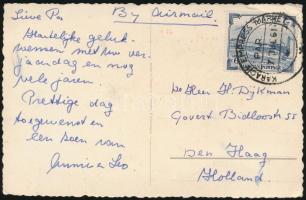 Lieve Pa
By Airmail
Hartelijke geluk-
wensen met uw ver-
jaardag en nog
vele jaren.
Prettige dag
toegewenst en
een zoen van
Annie en Leo
De Heer H. Dijkman
Govert Bidloostr 55
Den Haag
Holland.
KARACHI